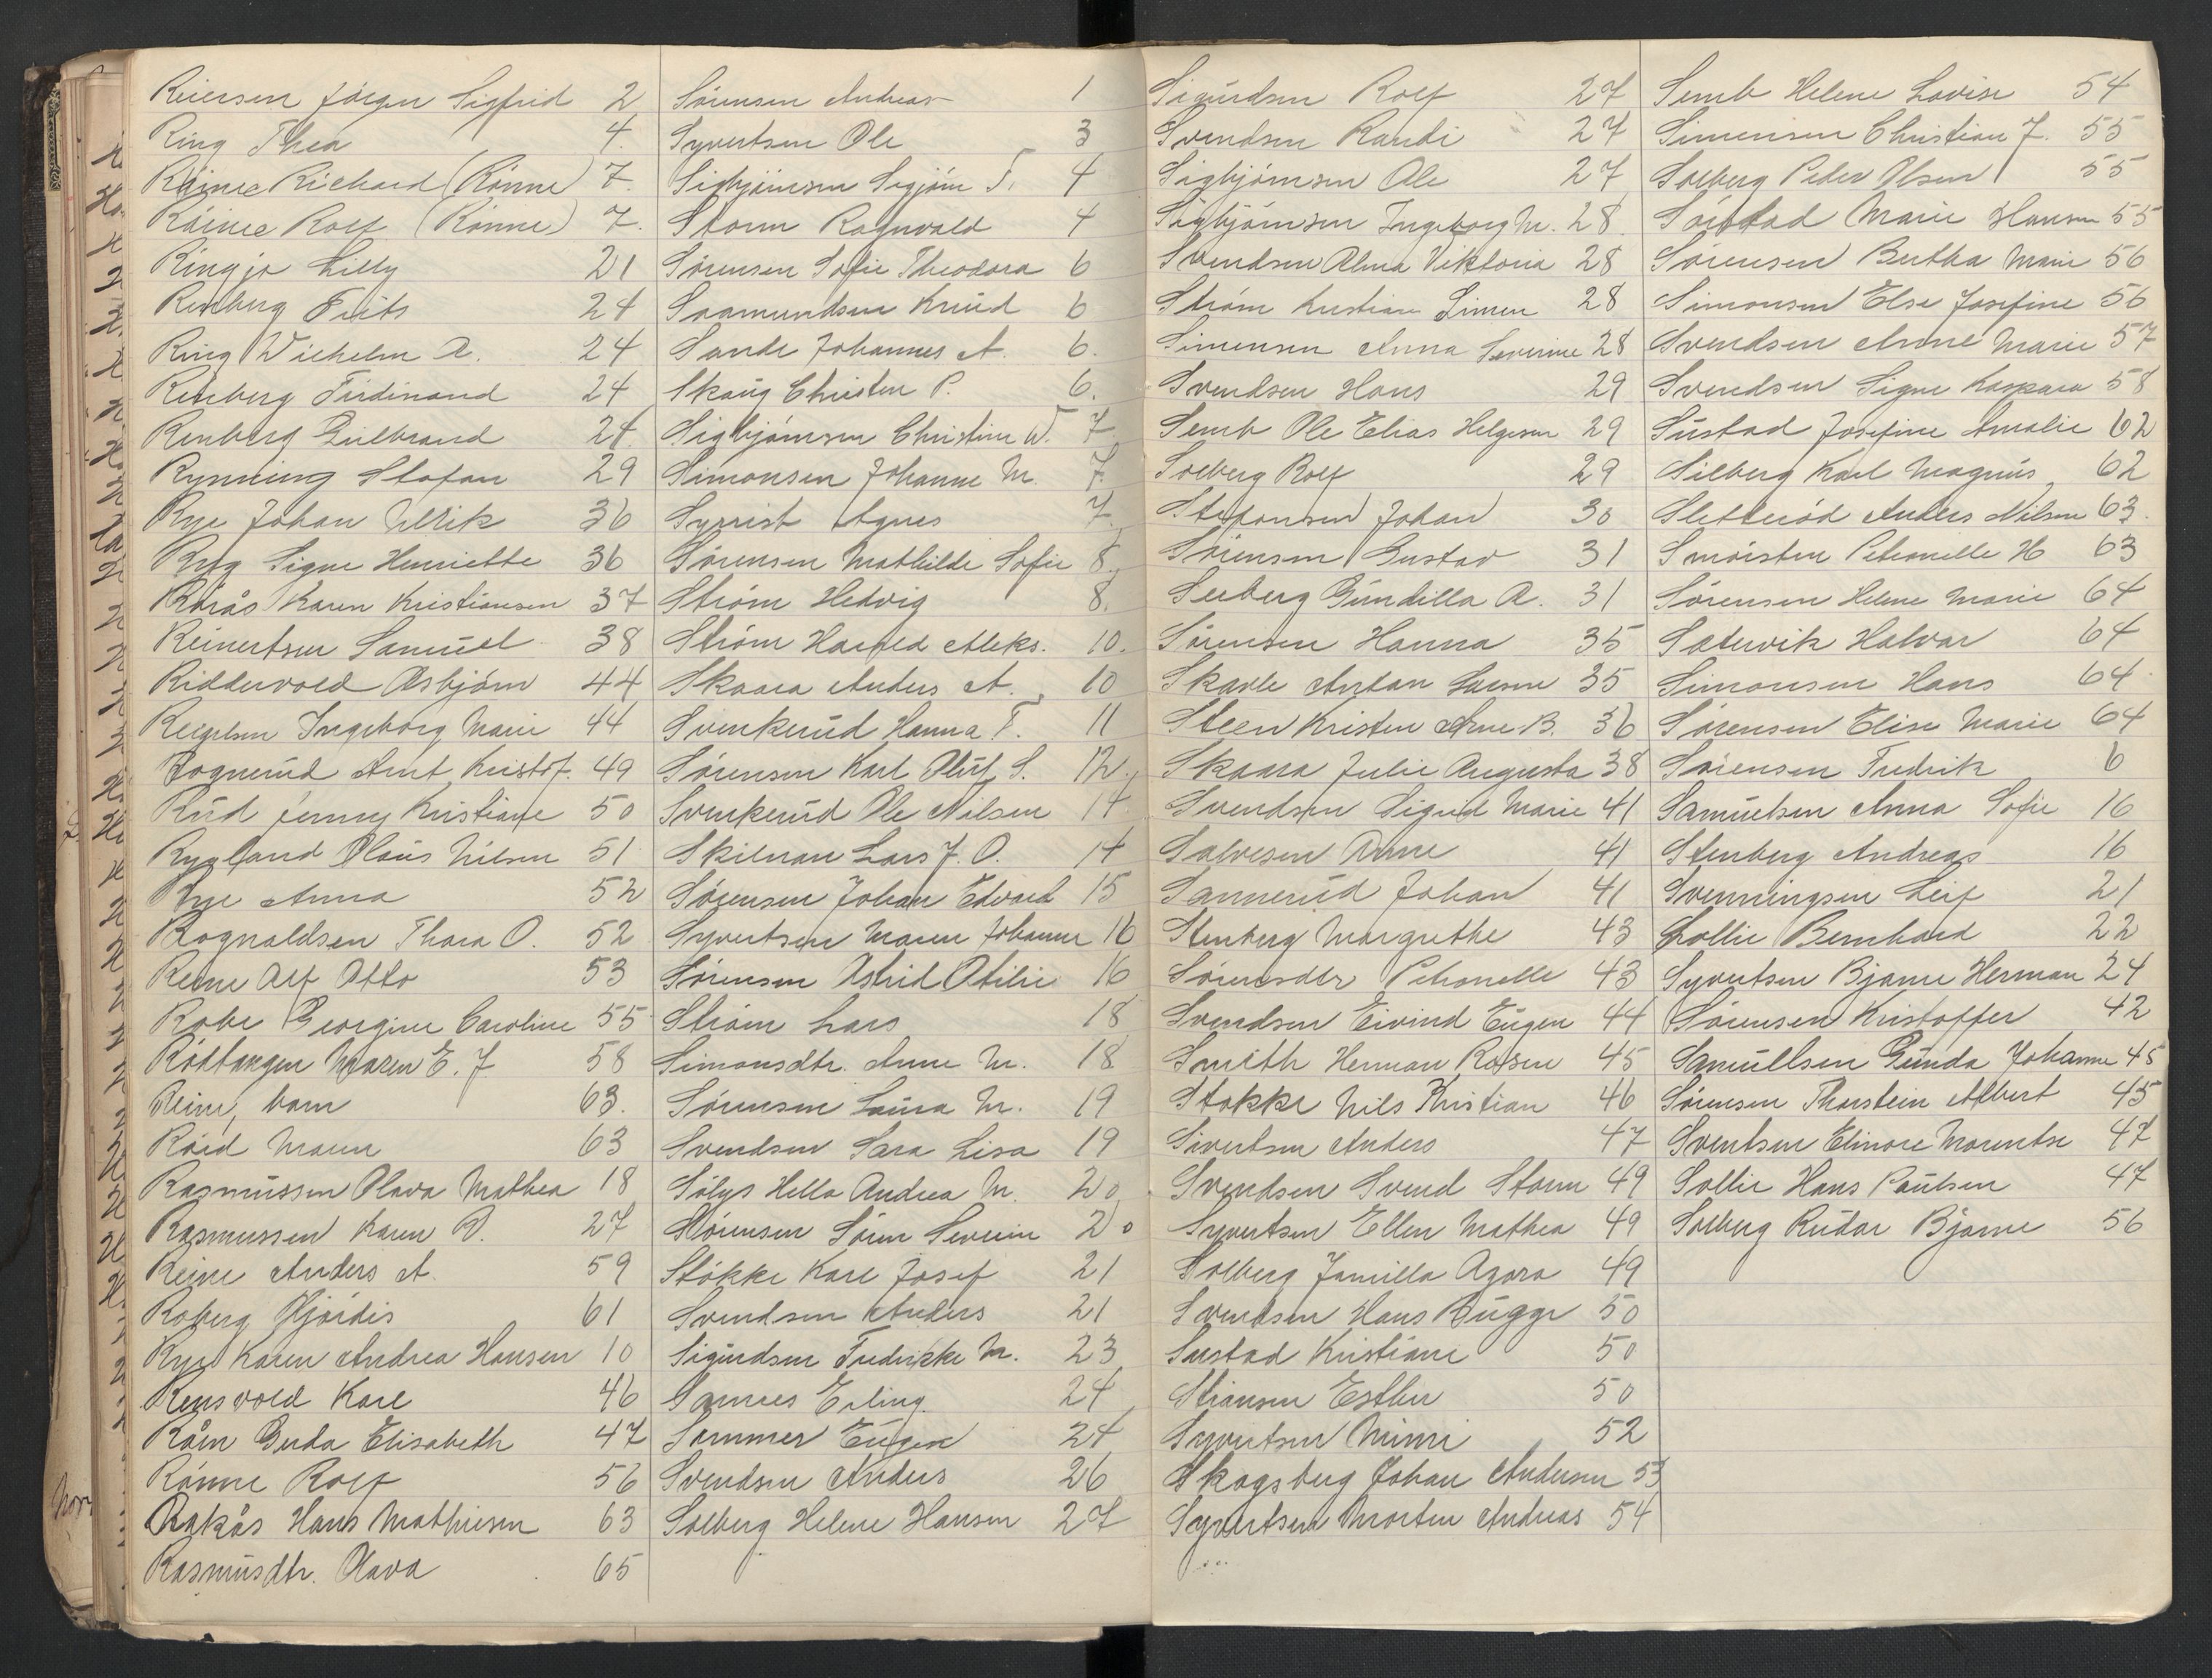 Reiersen Jörgen Sigfrid 2
Ring Thea 4.
Rainee Richard (Rönne) 7.
Rainee Rolf (Rönne) 7.
Ringjo Lilly 21
Renberg Frits 24
Ring Wilhelm A. 24
Renberg Ferdinand 24
Renberg Gulbrand 24.
Rynning Stefan 29
Rye Johan Ullrik 36
Ryg Signe Henriette 36
Rörås Karen Kristiansen 37
Reinertsen Samuel 38
Riddervold Asbjörn 44
Reigelsen Ingeborg Marie 44
Rognerud Arnt Kristof. 49
Rud Jenny Kristiane 50
Rygland Olaus Nilsen 51
Rye Anna 52
Rognaldsen Thara O. 52
Reine Alf Otto 53
Robe Georgine Caroline 55
Rödtangen Maren E. J. 58
Reine, barn 63.
Röed Maren 63
Rasmussen Olava Mathea 18
Rasmussen Karen D. 27
Reine Anders A. 59
Roberg Hjördis 61
Rye Karen Andrea Hansen 10
Rensvold Karl 46
Röen Gerda Elisabeth 47
Rönne Rolf 56
Rakås Hans Mathiesen 63
Rasmusdtr. Olava 65
Sörensen Andreas 1
Syvertsen Ole 3
Sigbjörnsen Sigjörn T. 4
Storm Ragnvald 4
Sörensen Sofie Theodora 6
Saamundsen Knud 6
Sande Johannes A. 6.
Skaug Christen P. 6.
Sigbjörnsen Christine W. 7
Simonsen Johanne M. 7.
Syrrist Agnes 7.
Sörensen Mathilde Sofie 8.
Ström Hedvig 8.
Ström Harald Aleks. 10.
Skaara Anders A. 10
Svenkerud Hanna T. 11
Sörensen Karl Oluf S. 12.
Svenkerud Ole Nilsen 14
Skilnan Lars J. O. 14
Sörensen Johan Edvard 15
Syvertsen Maren Johanne 16
Sörensen Astrid Otilie 16
Ström Lars 18
Simonsdtr. Anne M. 18
Sörensen Laura M. 19
Svendsen Sara Lisa 19
Sölys Hella Andrea M. 20
Sörensen Sören Severin 20
Stökke Karl Josef 21
Svendsen Anders 21
Sigurdsen Fredrikke M. 23
Sannes Erling. 24
Sommer Eugen 24
Svendsen Anders 26
Solberg Helene Hansen 27
Sigurdsen Rolf 27
Svendsen Randi 27
Sigbjörnsen Ole 27
Sigbjörnsen Ingeborg M. 28.
Svendsen Alma Viktoria 28
Ström Kristian Simen 28
Simensen Anna Severine 28
Svendsen Hans 29
Semb Ole Elias Helgesen 29
Solberg Rolf 29
Stefansen Johan 30
Sörensen Gustav 31
Seeberg Gundilla A. 31
Sörensen Hanna 35
Skavle Anton Larsen 35
Steen Kristen Arne B. 36
Skaara Julie Augusta 38
Svendsen Sigrid Marie 41
Salvesen Anne 41
Sannerud Johan 41
Stenberg Margrethe 43
Sörensdtr Petronelle 43
Svendsen Eivind Eugen 44
Smith Herman Rosen 45
Stokke Nils Kristian 46
Sivertsen Anders 47
Svendsen Svend Storm 49
Syvertsen Ellen Mathea 49
Solberg Jamilla Agora 49
Svendsen Hans Bugge 50
Sustad Kristiane 50
Stiansen Esther 50
Syvertsen Mimi 52
Skogsberg Johan Andersen 53
Syvertsen Morten Andreas 54
Semb Helene Lovise 54
Simensen Christian J. 55
Solberg Peder Olsen 55
Sörstad Marie Hansen 55
Sörensen Bertha Marie 56
Simonsen Else Josefine 56
Svendsen Anne Marie 57
Svendsen Signe Kaspara 58
Sustad Josefine Amalie 62
Silberg Karl Magnus 62
Sletteröd Anders Nilsen 63.
Smörsten Petronelle H 63
Sörensen Helene Marie 64
Satervik Halvar 64
Simonsen Hans 64.
Sörensen Elise Marie 64
Sörensen Fredrik 6
Samuelsen Anna Sofie 16
Stenberg Andreas 16
Svenningsen Leif 21
Sollie Bernhard 22
Syvertsen Bjarne Herman 24
Sörensen Kristoffer 42
Samuelsen Gunda Johanne 45
Sörensen Thorstein Albert 45
Sventsen Elinore Morentse 47
Sollie Hans Paulsen 47
Solberg Reidar Bjarne 56